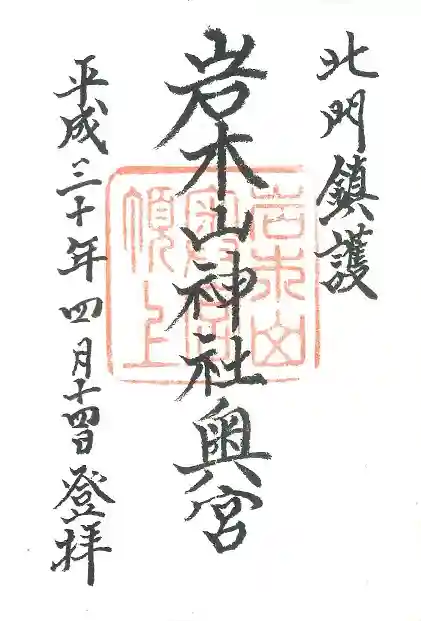 北門鎮護
岩木山神社奥宮
平成三十年四月十四日登拝
岩木山
奥宮
頂上